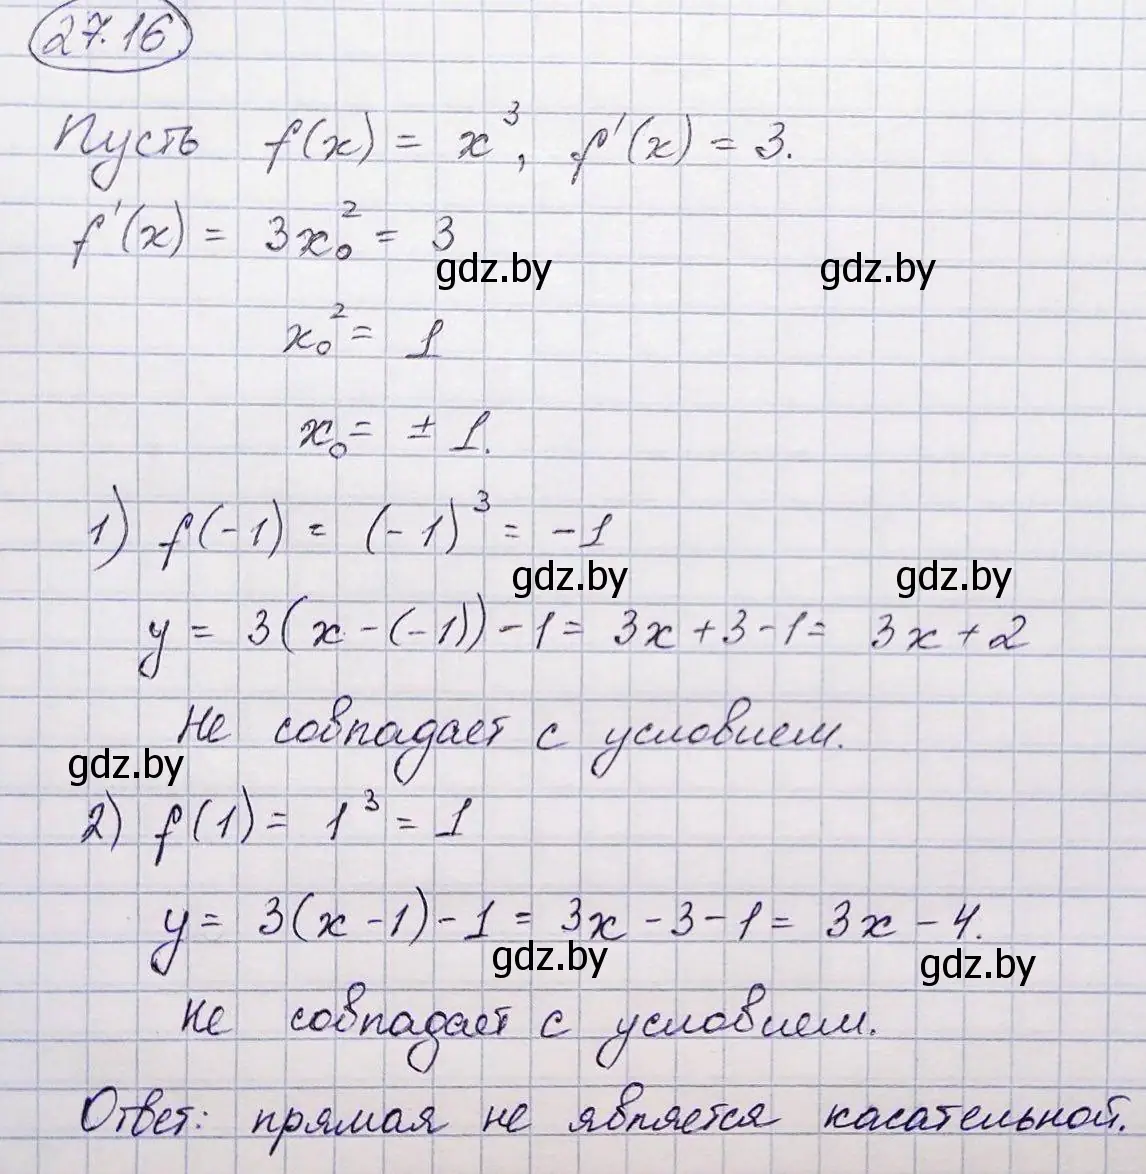 27.16
Пусть f(x) = x³, f'(x) = 3.
f'(x) = 3x₀² = 3
gdz.by gdz.by
x₀² = 1
x₀ = ± 1.
1) f(-1) = (-1)³ = -1
gdz.by gdz.by
y = 3(x-(-1))-1 = 3x+3-1 = 3x+2
Не совпадает с условием.
gdz.by
2) f(1) = 1³ = 1
y = 3(x-1)-1 = 3x-3-1 = 3x-4.
gdz.by gdz.by
Не совпадает с условием.
Ответ: прямая не является касательной.